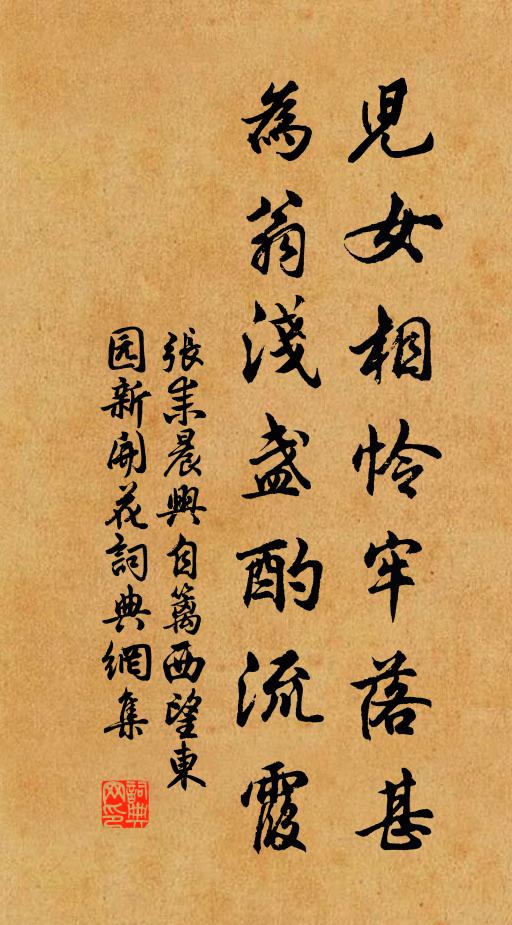 兒女相怜牢落甚
為翁淺盏酌流霞
張耒晨興自籬西望東
园新開花詞典網集
詞典网印